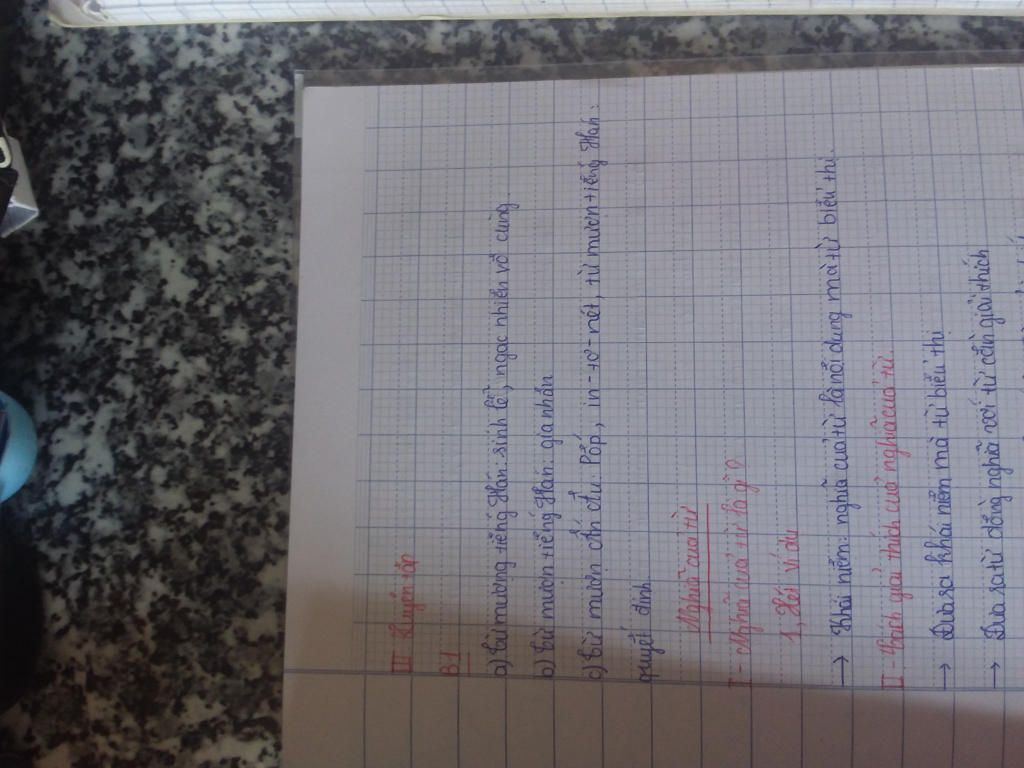 III Luyện tập
B1
a) Từ mượng tiếng Hán: sinh lễ, ngạc nhiên vô cùng.
b) Từ mượn tiếng Hán: gia nhân
c) Từ mượn ấn ẩu: Pốp, in-tơ-nét, từ mượn tiếng Hán:
quyết định
Nghĩa của từ
I - Nghĩa của từ là gì?
1, Xét ví dụ
→ Khái niệm: nghĩa của từ là nội dung mà từ biểu thị.
II - Cách giải thích của nghĩa của từ.
→ Đưa ra khái niệm mà từ biểu thị
→ Đưa ra từ đồng nghĩa với từ cần giải thích